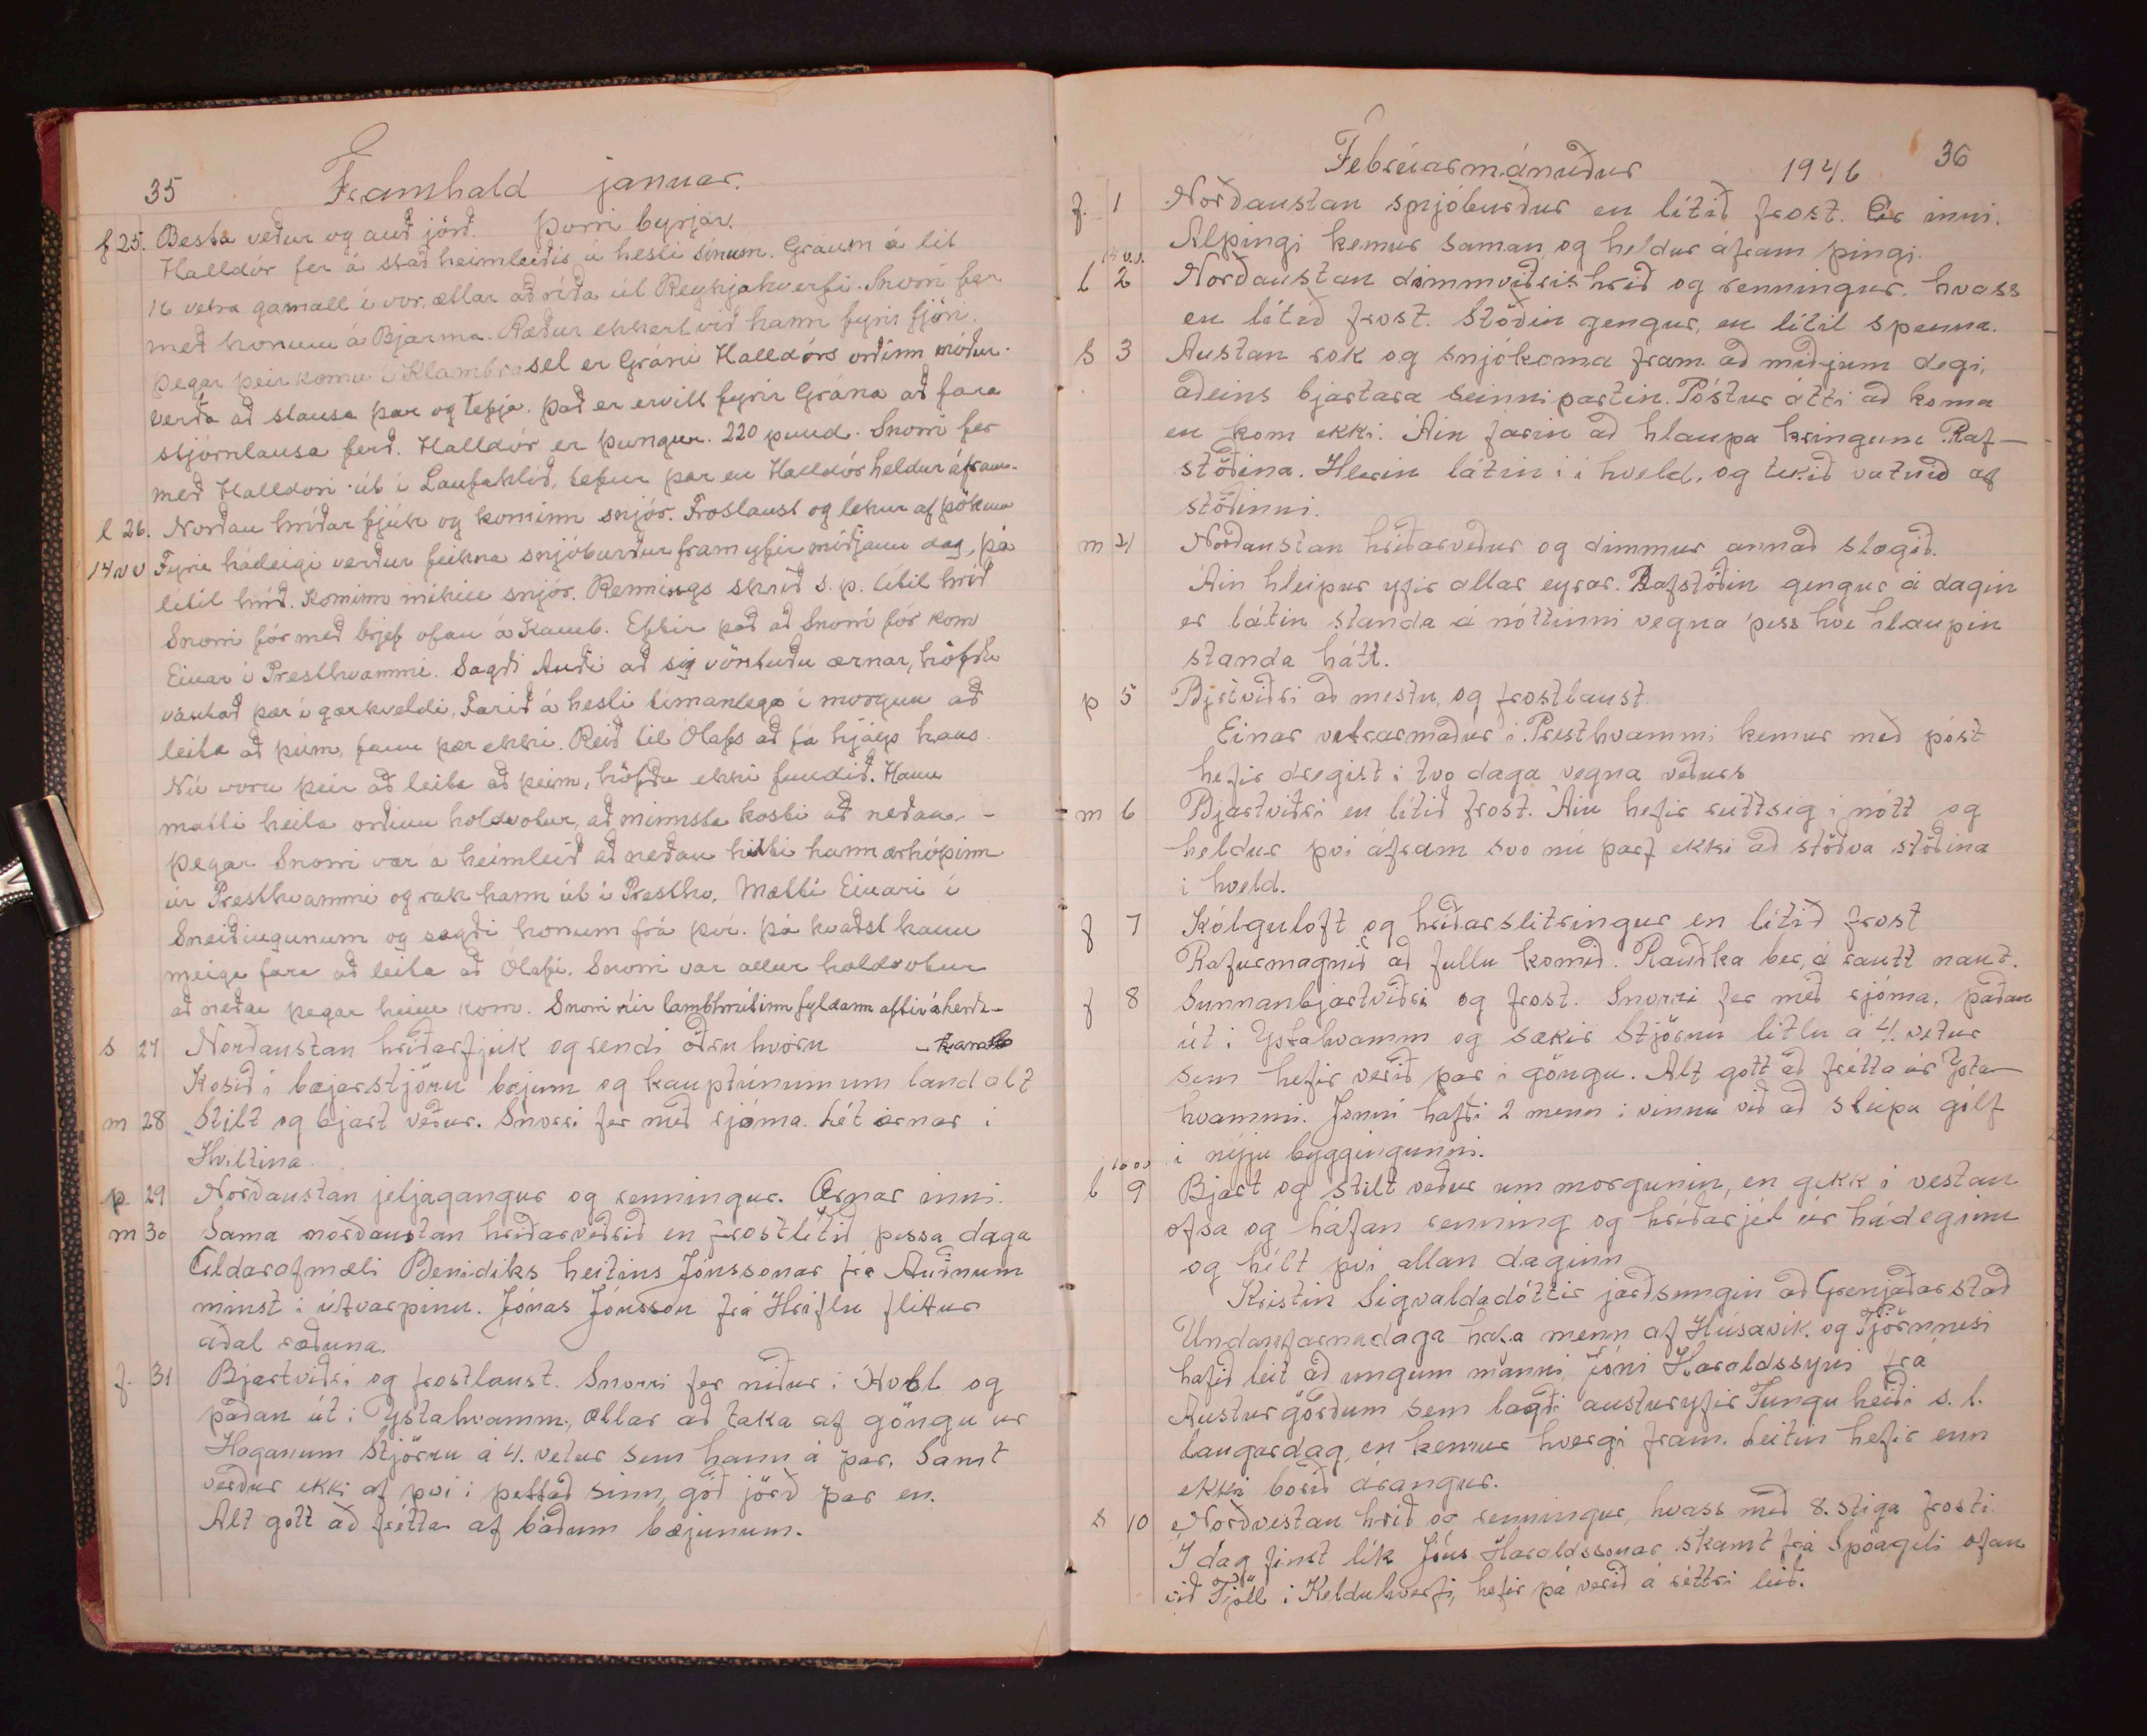 35 Framhald januar.
f 25. Besta veður og auð jörð. Þorri byrjar.
Halldór fer á stað heimleiðis á hesti sínum. Gráum á lit
16 vetra gamall í vor, ætlar að ríða út Reykjahverfi. Snorri fer
með honum á Bjarma. Ræður ekkert við hann fyrir fjöri.
Þegar þeir komu í Klambrasel er Gráni Halldórs orðinn móður.
verða að stansa þar og tefja. Það er ervitt fyrir Grána að fara
stjórnlausa ferð. Halldór er þungur. 220 pund. Snorri fer
með Halldóri út í Laufahlíð, tefur þar en Halldór heldur áfram.
l 26. Norðan hríðar fjúk og kominn snjór. Frostlaust og lekur af þökum
14 v v Fyrir hádeigi verður feikna snjóburður fram yfir miðjann dag, þá
lítil hríð. Kominn mikill snjór. Rennings skrið s.p. lítil hríð
Snorri fór með brjef ofan á Kamb. Eftir það að Snorri fór kom
Einar í Presthvammi. Sagði Auði að sig vöntuðu ærnar, höfðu
vantað þær í gærkveldi. Farið á hesti tímanlega í morgun að
leita að þeim, fann þær ekki. Reið til Ólafs að fá hjálp hans.
Nú voru þeir að leita að þeim, höfðu ekki fundið. Hann
mátti heita orðinn holdvotur, að minnsta kosti að neðan. -
Þegar Snorri var á heimleið að neðan hitti hann ærhópinn
úr Presthvammi og rak hann út í Presthv. Mætti Einari í
Sneiðingunum og sagði honum frá því. Þá kvaðst hann
meiga fara að leita að Ólafi. Snorri var allur holdvotur
að neðan þegar heim kom. Snorri rúir lambhrútinn fyldann aftir á herða-
s 27 Norðaustan hríðarfjuk og rendi öðru hvöru - kamb
Kosið í bæjarstjörn bæjum og kauptúnum um land alt
m 28 Stilt og bjart veður. Snorri fer með rjóma. Lét ærnar í
Hvíltina.
þ 29 Norðaustan jeljagangur og renningur. Ærnar inni.
m 30 Sama norðaustan hriðarveðrið en frostlítið þessa daga
Aldarafmæli Benidiks heitins Jónssonar frá Auðnum
minst í útvarpinu. Jónas Jónsson frá Hriflu flitur
aðal ræðuna.
f. 31 Bjartviðri og frostlaust. Snorri fer niður í Hvol og
þaðan út í Ystahvamm, ætlar að taka af göngu úr
Haganum Stjörnu á 4. vetur sem hann á þar. Samt
verður ekki af því í þettað sinn, góð jörð þar en.
Alt gott að frétta af báðum bæjunum.
Febrúarmánuður 1946 36
f. 1 Norðaustan snjóburður en lítið frost. Ær inni.
Alþingi kemur saman og heldur áfram þingi.
15 v.v.
l 2 Norðaustan dimmviðris hríð og renningur, hvass
en lítið frost. Stöðin gengur, en lítil spenna.
s 3 Austan rok og snjókoma fram að miðjum degi,
aðeins bjartara seinnipartin. Póstur átti að koma
en kom ekki. Áin farin að hlaupa kringum Raf-
stöðina. Hlerin látin í í kveld, og tekið vatnið af
stöðinni.
m 4 Norðaustan hríðarveður og dimmur annað slagið.
Áin hleipur yfir allar eyrar. Rafstöðin gengur á dagin
er látin standa á nóttinni vegna þess hve hlaupin
standa hátt.
þ 5 Bjrtviðri að mestu, og frostlaust
Einar vetrarmaður í Presthvammi kemur með póst
hefir dregist í tvo daga vegna veðurs
m 6 Bjartviðri en lítið frost. Áin hefir ruttsig í nótt og
heldur því áfram svo nú þarf ekki að stöðva stöðina
í kveld.
f 7 Kólguloft og hríðarslitringur en lítið frost
Rafurmagnið að fullu komið. Rauðka ber, á rautt naut.
f 8 Sunnanbjartviðri og frost. Snorri fer með rjóma, þaðan
út í Ystahvamm og sækir Stjörnu litlu á 4. vetur
sem hefir verið þar í göngu. Alt gott að frétta úr Ysta-
hvammi. Jónni hafði 2 menn í vinnu við að steipa gólf
í nýju byggingunni.
16 vv
l 9 Bjart og stilt veður um morgunin, en gekk í vestan
ofsa og háfan renning og hríðarjel úr hádeginu
og hélt því allan daginn
Kristin Sigvaldadóttir jarðsungin að Grenjaðarstað
Undanfarnadaga hafa menn af Húsavík og Tjörnnesi
hafið leit að ungum manni, Jóni Haraldssyni frá
Austurgörðum sem lagði austuryfir Tunguheiði s.l.
laugardag, en kemur hvergi fram. Leitin hefir enn
ekki borið árangur.
s 10 Norðvestan hríð og renningur, hvass með 8. stiga frosti
Í dag finst lík Jóns Haraldssonar skamt frá Spóageli ofan
við Fjöll í Kelduhverfi, hefir þá verið á réttri leið.